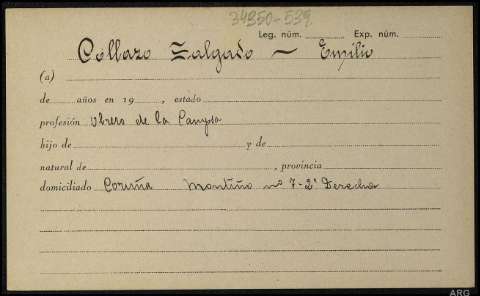 34350-539
Leg. núm. Exp. núm.
Collazo Salgado - Emilio
(a)
de años en 19 , estado
profesión obrero de la Campsa
hijo de y de
natural de , provincia
domiciliado Coruña Montiño nº 7-2º Derecha
ARG